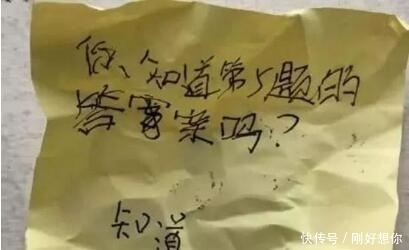 你知道第5题的
答案吗?
知道
快传号 / 刚好想你